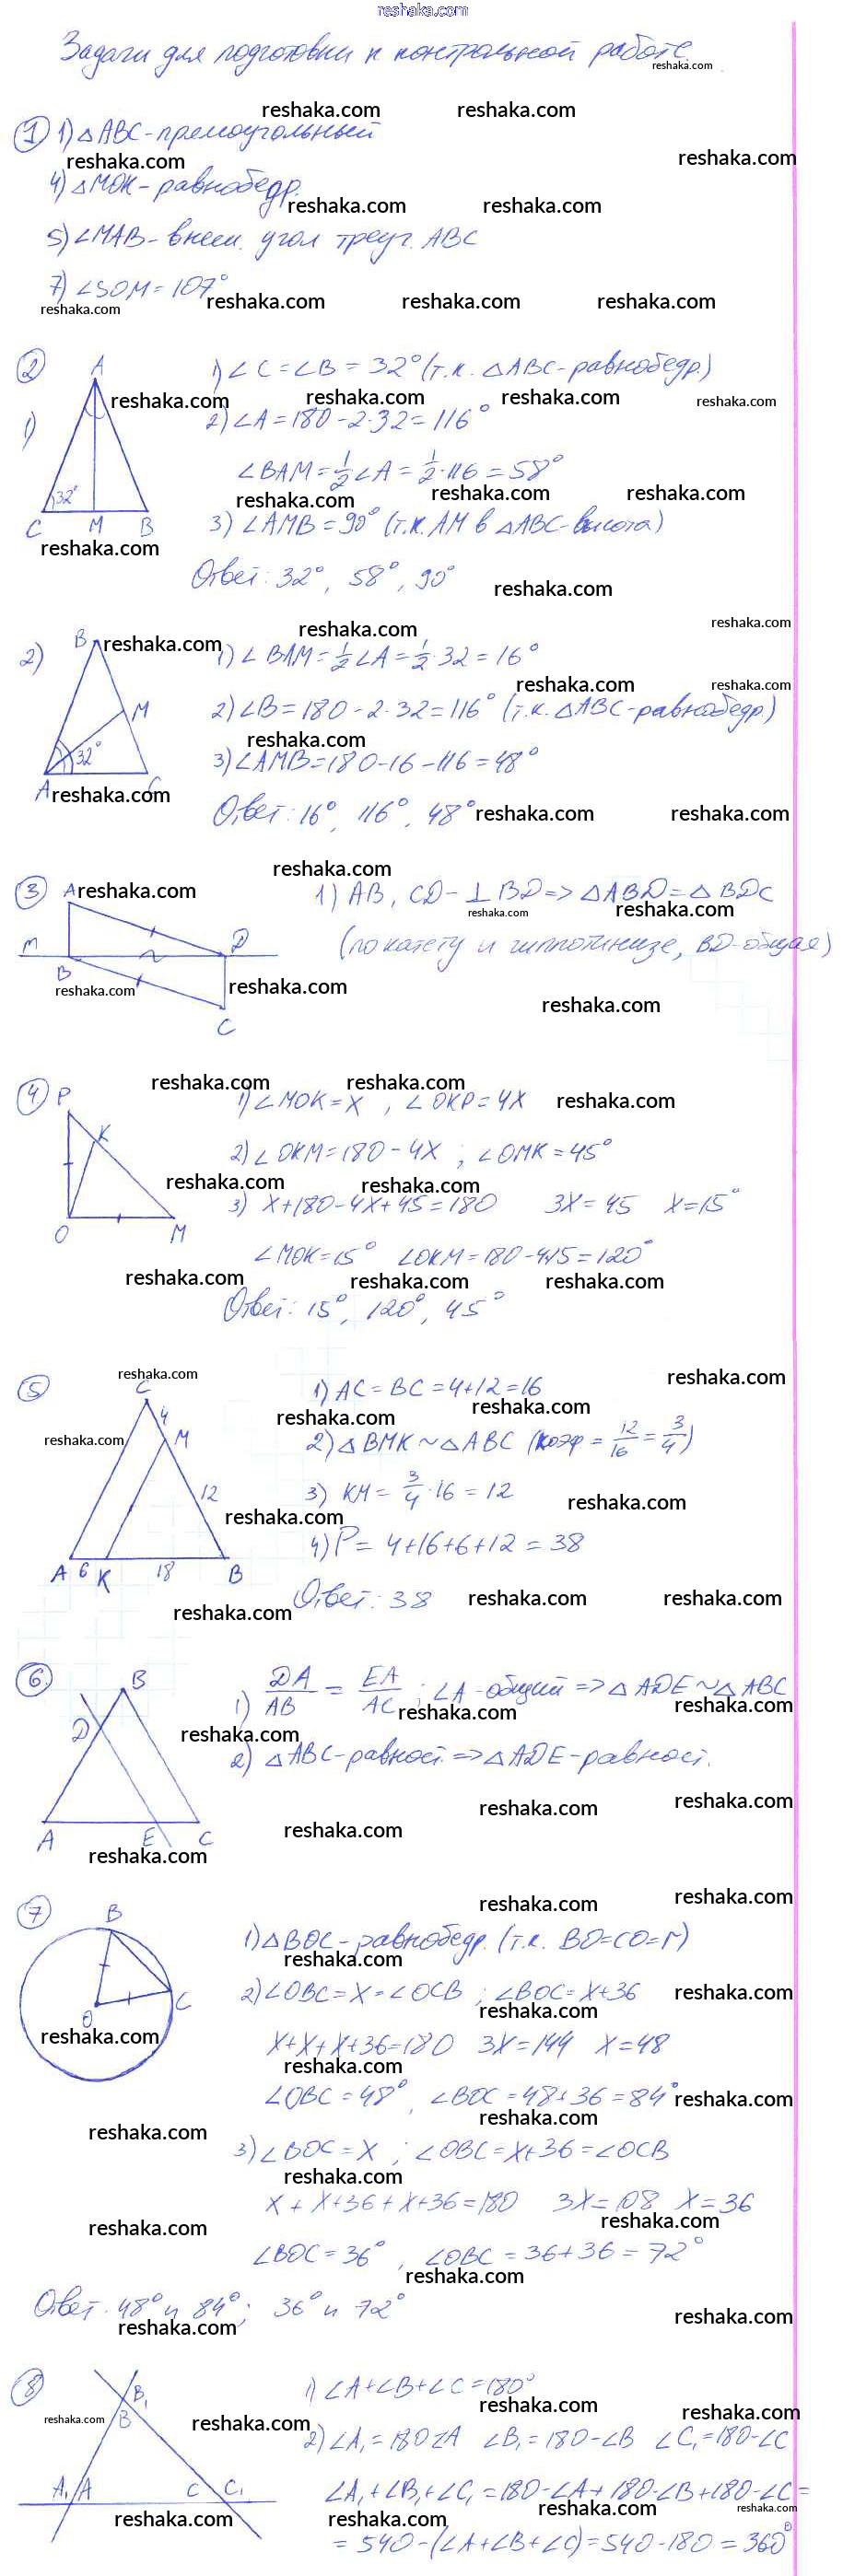 reshaka.com
Задачи для подготовки к контрольной работе.
① 1) △ABC-прямоугольный
4) △MOK-равнобедр.
5) ∠MAB-внеш. угол треуг. ABC
7) ∠SOM=107°
② 1)
A
32°
C M B
1) ∠C=∠B=32° (т.к. △ABC-равнобедр.)
2) ∠A=180-2·32=116°
∠BAM=1/2∠A=1/2·116=58°
3) ∠AMB=90° (т.к. AM в △ABC-высота)
Ответ: 32°, 58°, 90°
2)
B
M
32°
A C
1) ∠BAM=1/2∠A=1/2·32=16°
2) ∠B=180-2·32=116° (т.к. △ABC-равнобедр.)
3) ∠AMB=180-16-116=48°
Ответ: 16°, 116°, 48°
③
A
M D
B
C
1) AB, CD-⊥BD=>△ABD=△BDC
(по катету и гиппотинизе, BD-общая)
④
P
K
O M
1) ∠MOK=X, ∠OKP=4X
2) ∠OKM=180-4X; ∠OMK=45°
3) X+180-4X+45=180 3X=45 X=15°
∠MOK=15° ∠OKM=180-4·15=120°
Ответ: 15°, 120°, 45°
⑤
C
4
M
12
A 6 K 18 B
1) AC=BC=4+12=16
2) △BMK~△ABC (коэф=12/16=3/4)
3) KM=3/4·16=12
4) P=4+16+6+12=38
Ответ: 38
⑥
B
D
A E C
1) DA/AB=EA/AC; ∠A-общий=>△ADE~△ABC
2) △ABC-равност.=>△ADE-равност.
⑦
B
O C
1) △BOC-равнобедр. (т.к. BO=CO=r)
2) ∠OBC=X=∠OCB; ∠BOC=X+36
X+X+X+36=180 3X=144 X=48
∠OBC=48°, ∠BOC=48+36=84°
3) ∠BOC=X; ∠OBC=X+36=∠OCB
X+X+36+X+36=180 3X=108 X=36
∠BOC=36°, ∠OBC=36+36=72°
Ответ: 48° и 84°; 36° и 72°
⑧
B₁
B
A₁ A C C₁
1) ∠A+∠B+∠C=180°
2) ∠A₁=180-∠A ∠B₁=180-∠B ∠C₁=180-∠C
∠A₁+∠B₁+∠C₁=180-∠A+180-∠B+180-∠C=
=540-(∠A+∠B+∠C)=540-180=360°